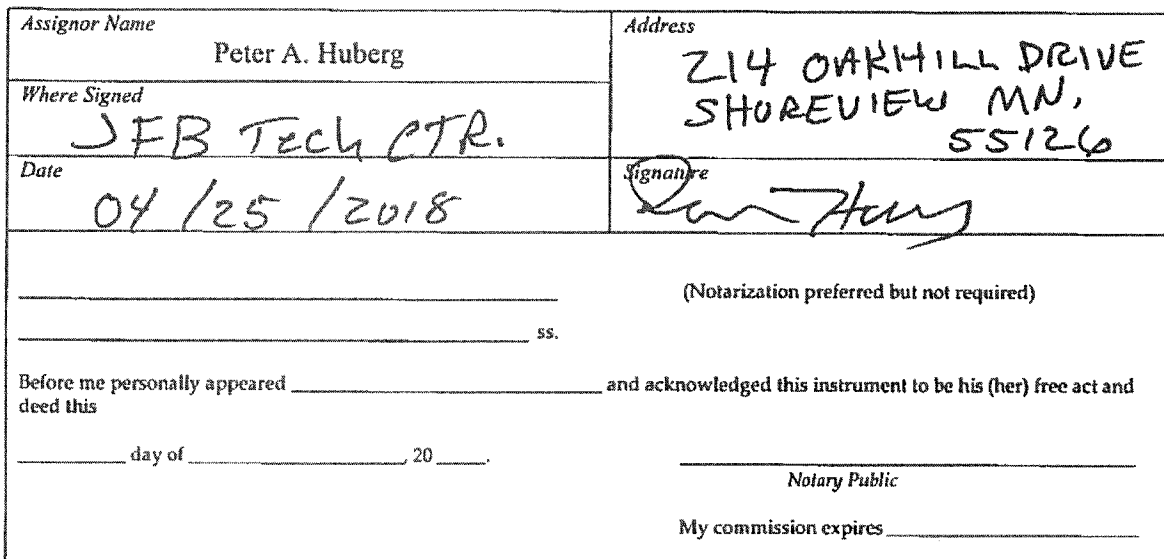 Assignor Name
Peter A. Huberg
Address
214 OAKHILL DRIVE
SHOREVIEW MN,
55126
Where Signed
JFB Tech CTR.
Date
04/25/2018
Signature
(Notarization preferred but not required)
ss.
Before me personally appeared ____ and acknowledged this instrument to be his (her) free act and
deed this
____ day of ____, 20____.
Notary Public
My commission expires ____